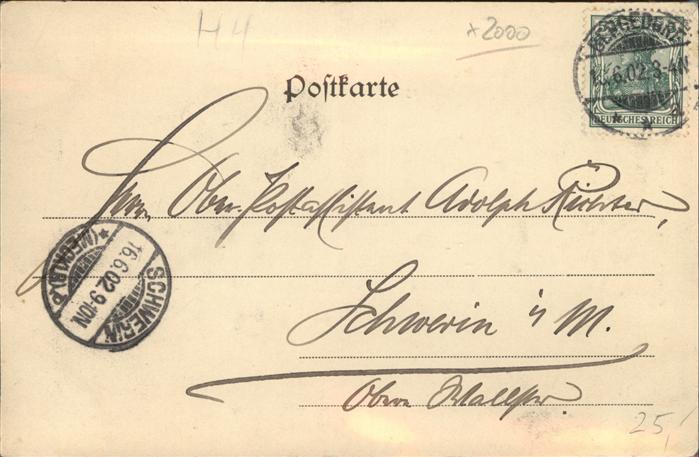 H4
*2000
BERGEDORF
6.02.3-4N
DEUTSCHES REICH
Postkarte
Herrn Ober-Postassistent Adolph Richter,
SCHWERIN
16.6.02.9-10N.
(MECKLB)
Schwerin i/ M.
Obere Wallstr.
25,-